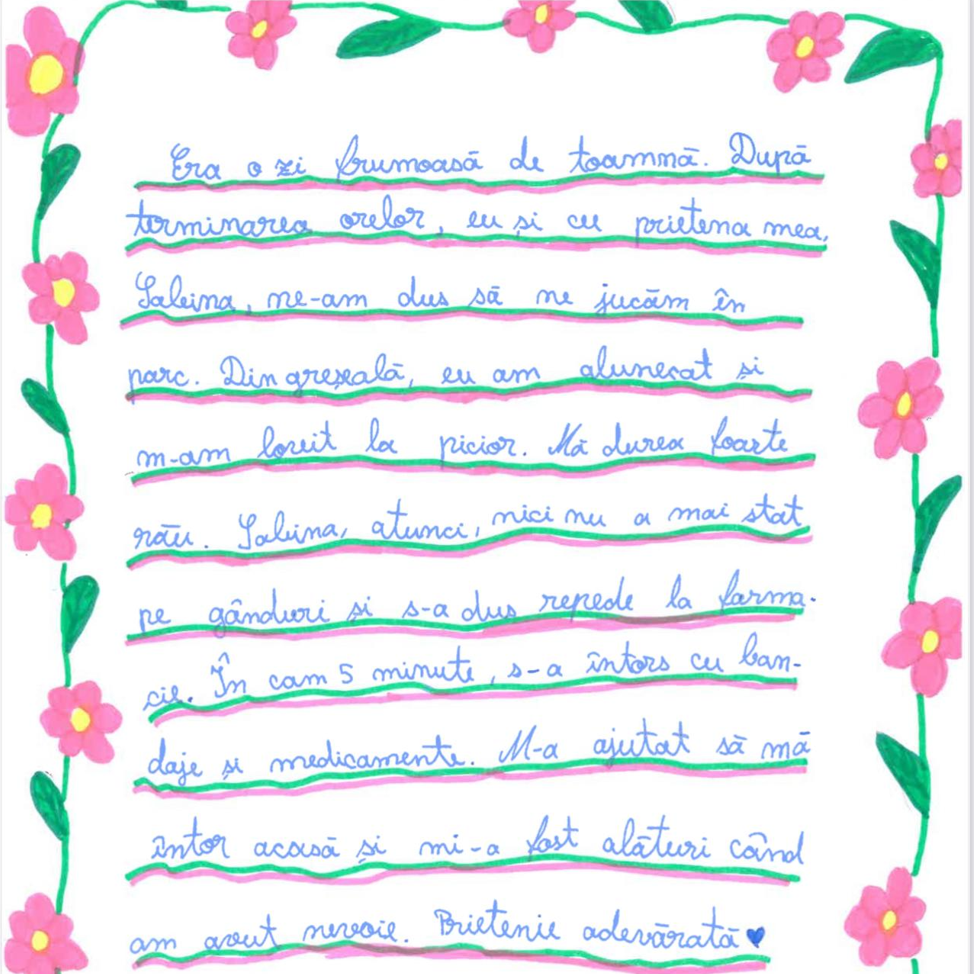 Era o zi frumoasă de toamnă. După
terminarea orelor, eu și cu prietena mea,
Sabina, ne-am dus să ne jucăm în
parc. Din greșeală, eu am alunecat și
m-am lovit la picior. Mă durea foarte
rău. Sabina, atunci, nici nu a mai stat
pe gânduri și s-a dus repede la farma-
cie. În cam 5 minute, s-a întors cu ban-
daje și medicamente. M-a ajutat să mă
întorc acasă și mi-a fost alături când
am avut nevoie. Prietenie adevărată ♥